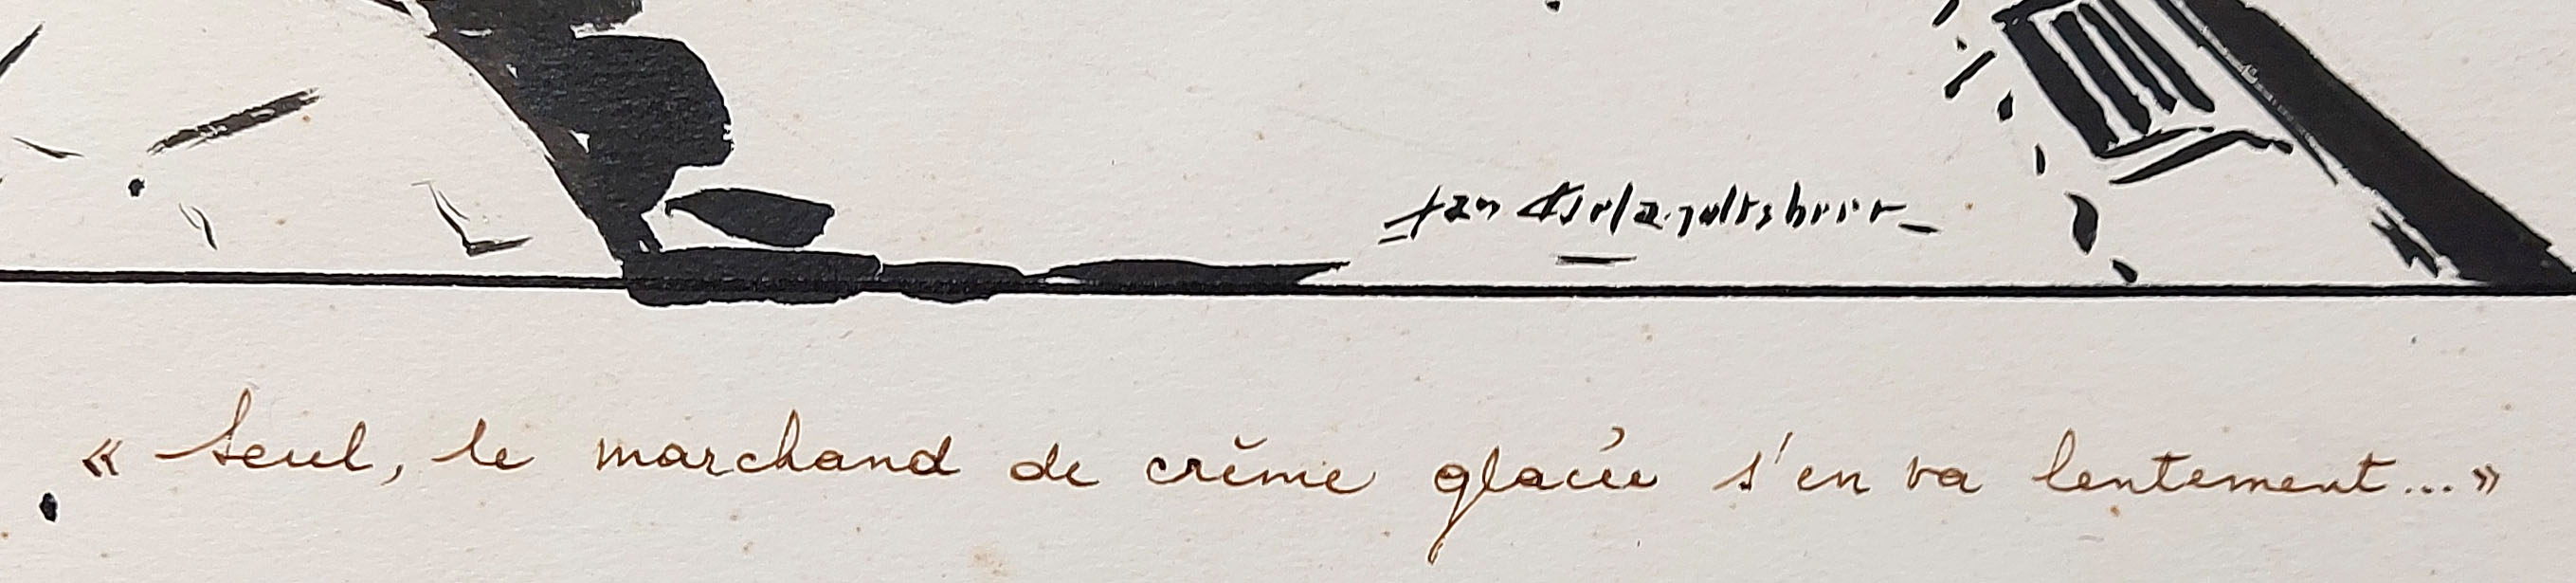 « Seul, le marchand de crème glacée s'en va lentement... »